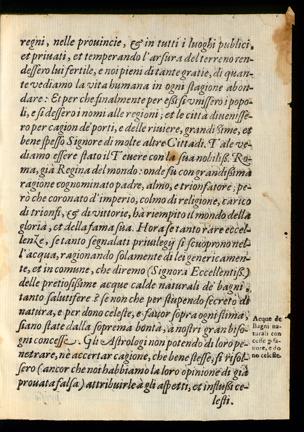 regni, nelle prouincie, & in tutti i luoghi publici,
et priuati, et temperando l'arsura del terreno ren-
dessero lui fertile, e noi pieni di tante gratie, di quan-
te vediamo la vita humana in ogni stagione abon-
dare: Et per che finalmente per essi si vnissero i popo-
li, e si dessero i nomi alle regioni; et le città diuenisse-
ro per cagion de porti, e delle riuiere, grandissime, et
bene spesso Signore di molte altre Cittadi. Tale ve-
diamo essere stato il Teuere con la sua nobiliss. Ro-
ma, già Regina del mondo: onde fu con grandissima
ragione cognominato padre, almo, e trionfatore; pe-
rò che coronato d'imperio, colmo di religione, carico
di trionfi, & di vittorie, hà riempito il mondo della
gloria, et della fama sua. Hora se tanto rare eccel-
lenze, se tanto segnalati priuilegij si scuoprono nel
l'acqua, ragionando solamente di lei genericamen-
te, et in comune, che diremo (Signora Eccellentiss.)
delle pretiosissime acque calde naturali de' bagni,
tanto salutifere è se non che per stupendo secreto di
natura, e per dono celeste, e fauor sopra ogni stima,
siano state dalla soprema bontà, a nostri gran biso-
gni concesse. Gli Astrologi non potendo di loro pe-
netrare, ne accertar cagione, che bene stesse; si risol
sero (ancor che noi habbiamo la loro opinione di già
prouata falsa) attribuirle à gli aspetti, et influssi ce-
lesti.
Acque de
Bagni na-
turali con
cesse p fa-
uore, e do
no celeste.